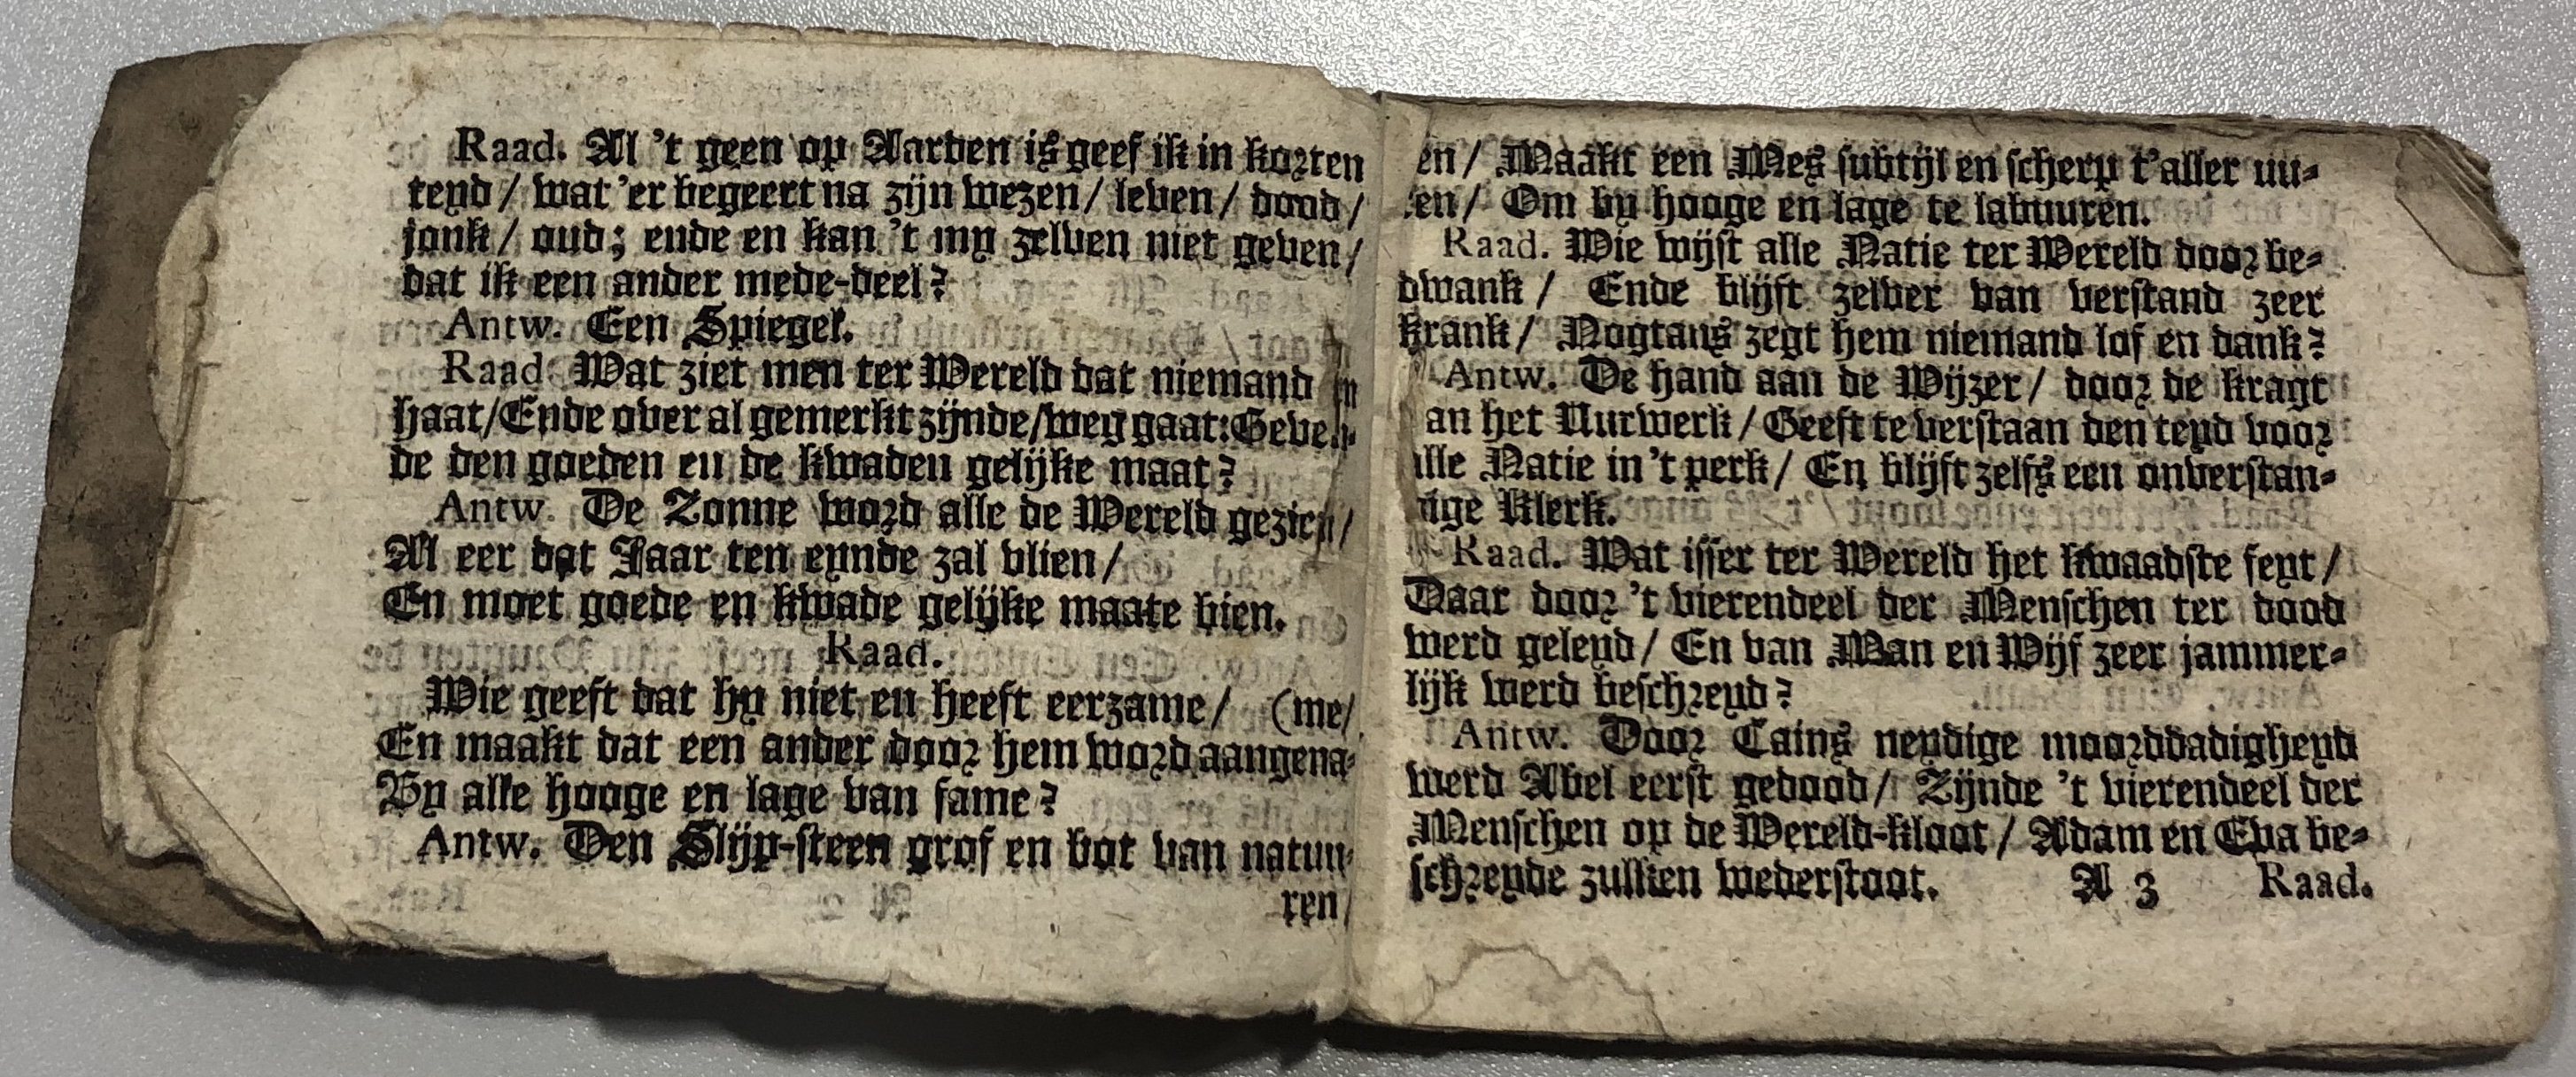 Raad. Al 't geen op Aarden is geef ik in korten
teyd / wat 'er begeert na zijn wezen / leven / dood /
jonk / oud; ende en kan 't my zelven niet geven /
dat ik een ander mede-deel?
Antw. Een Spiegel.
Raad. Wat ziet men ter Wereld dat niemand
haat / Ende over al gemerkt zijnde / weg gaat: Geven-
de den goeden en de kwaden gelijke maat?
Antw. De Zonne word alle de Wereld gezien /
Al eer dat Jaar ten eynde zal vlien /
En moet goede en kwade gelijke maate bien.
Raad.
Wie geeft dat hy niet en heeft eerzame / (me /
En maakt dat een ander door hem word aangena-
By alle hooge en lage van fame?
Antw. Den Slijp-steen grof en bot van natuu-
ren /
en / Maakt een Mes subtijl en scherp t'aller uu-
en / Om by hooge en lage te labuuren.
Raad. Wie wijst alle Natie ter Wereld door be-
dwank / Ende blijft zelver van verstand zeer
krank / Nogtans zegt hem niemand lof en dank?
Antw. De hand aan de Wijzer / door de kragt
an het Uurwerk / Geeft te verstaan den teyd voor
alle Natie in 't perk / En blijft zelfs een onverstan-
dige Klerk.
Raad. Wat isser ter Wereld het kwaadste feyt /
Daar door 't vierendeel der Menschen ter dood
werd geleyd / En van Man en Wijf zeer jammer-
lijk werd beschreyd?
Antw. Door Cains neydige moorddadigheyd
werd Abel eerst gedood / Zijnde 't vierendeel der
Menschen op de Wereld-kloot / Adam en Eva be-
schreyde zulken wederstoot. A 3 Raad.